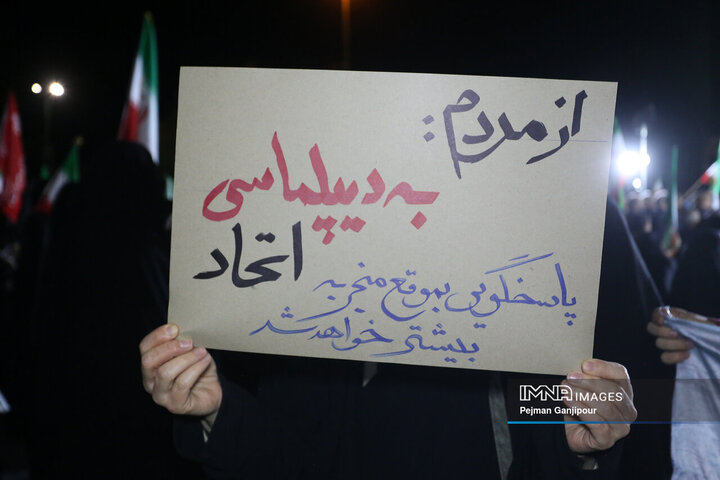 از مردم:
به دیپلماسی
پاسخگویی بموقع منجر به
اتحاد
بیشتر خواهد شد
IMNA IMAGES
Pejman Ganjipour